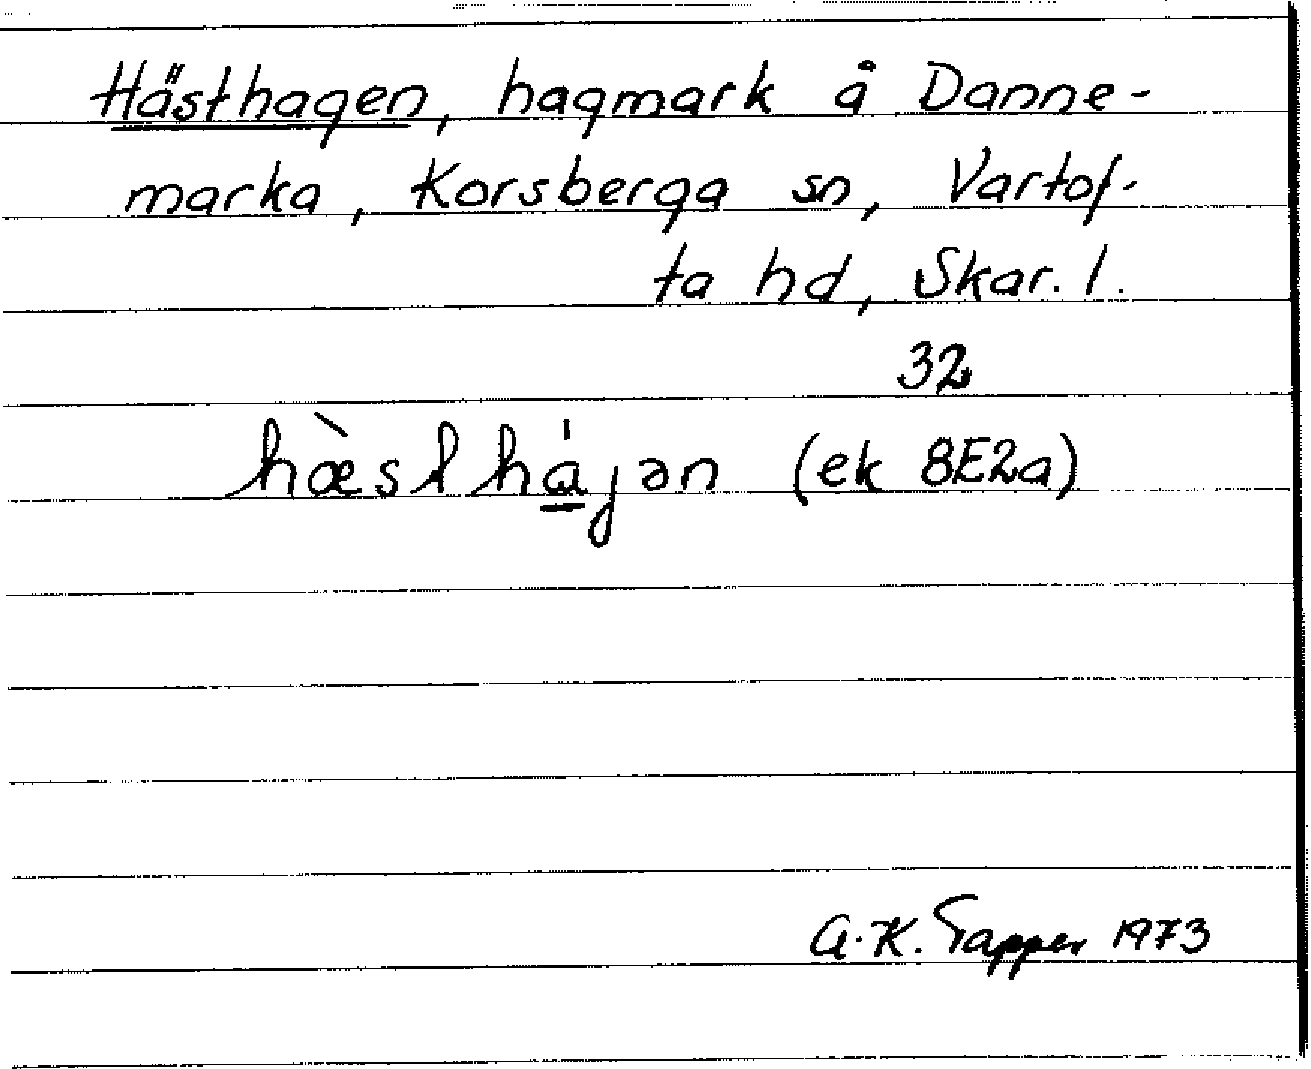 Hästhagen, hagmark å Danne-
marka, Korsberga sn, Vartof-
ta hd, Skar. l.
32
hæ̀stha̱̍jən (ek 8E2a)
A.K. Tapper 1973